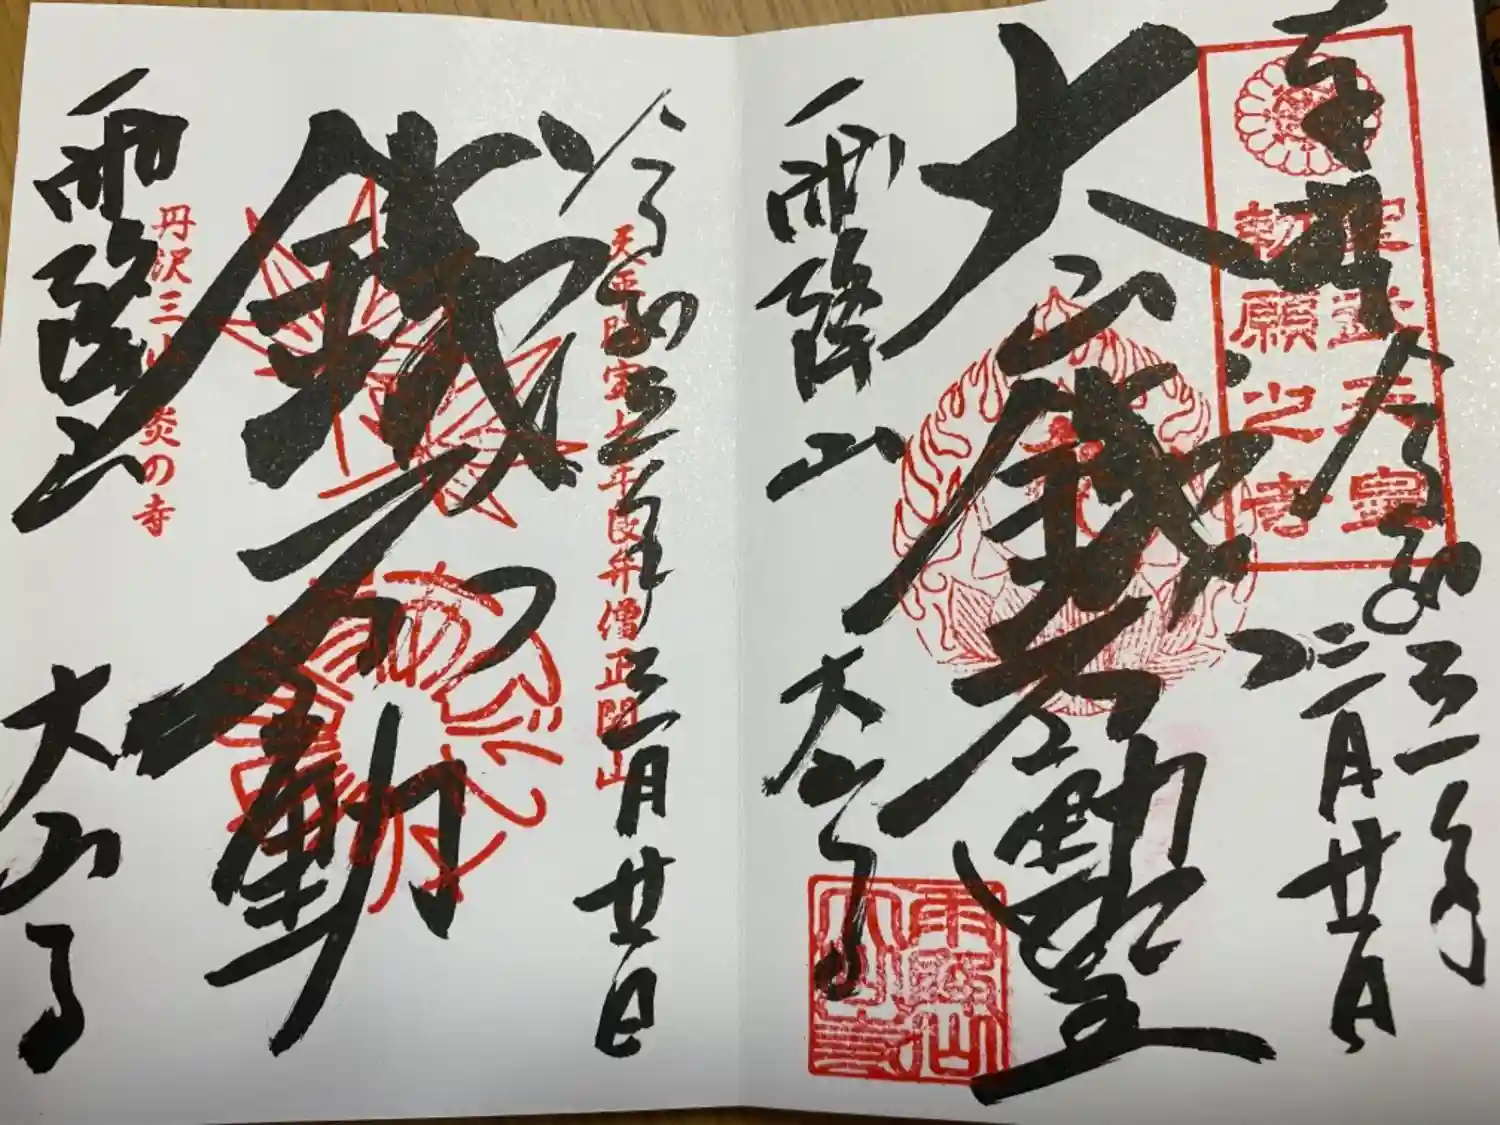 奉拝
令和三年
二月廿八日
聖武天皇
勅願之寺
大山鐵不動堂
雨降山
大山寺
雨降山
大山寺
令和三年
二月廿八日
天平勝宝七年良弁僧正開山
鐵不動
丹沢三山 炎の寺
雨降山
大山寺